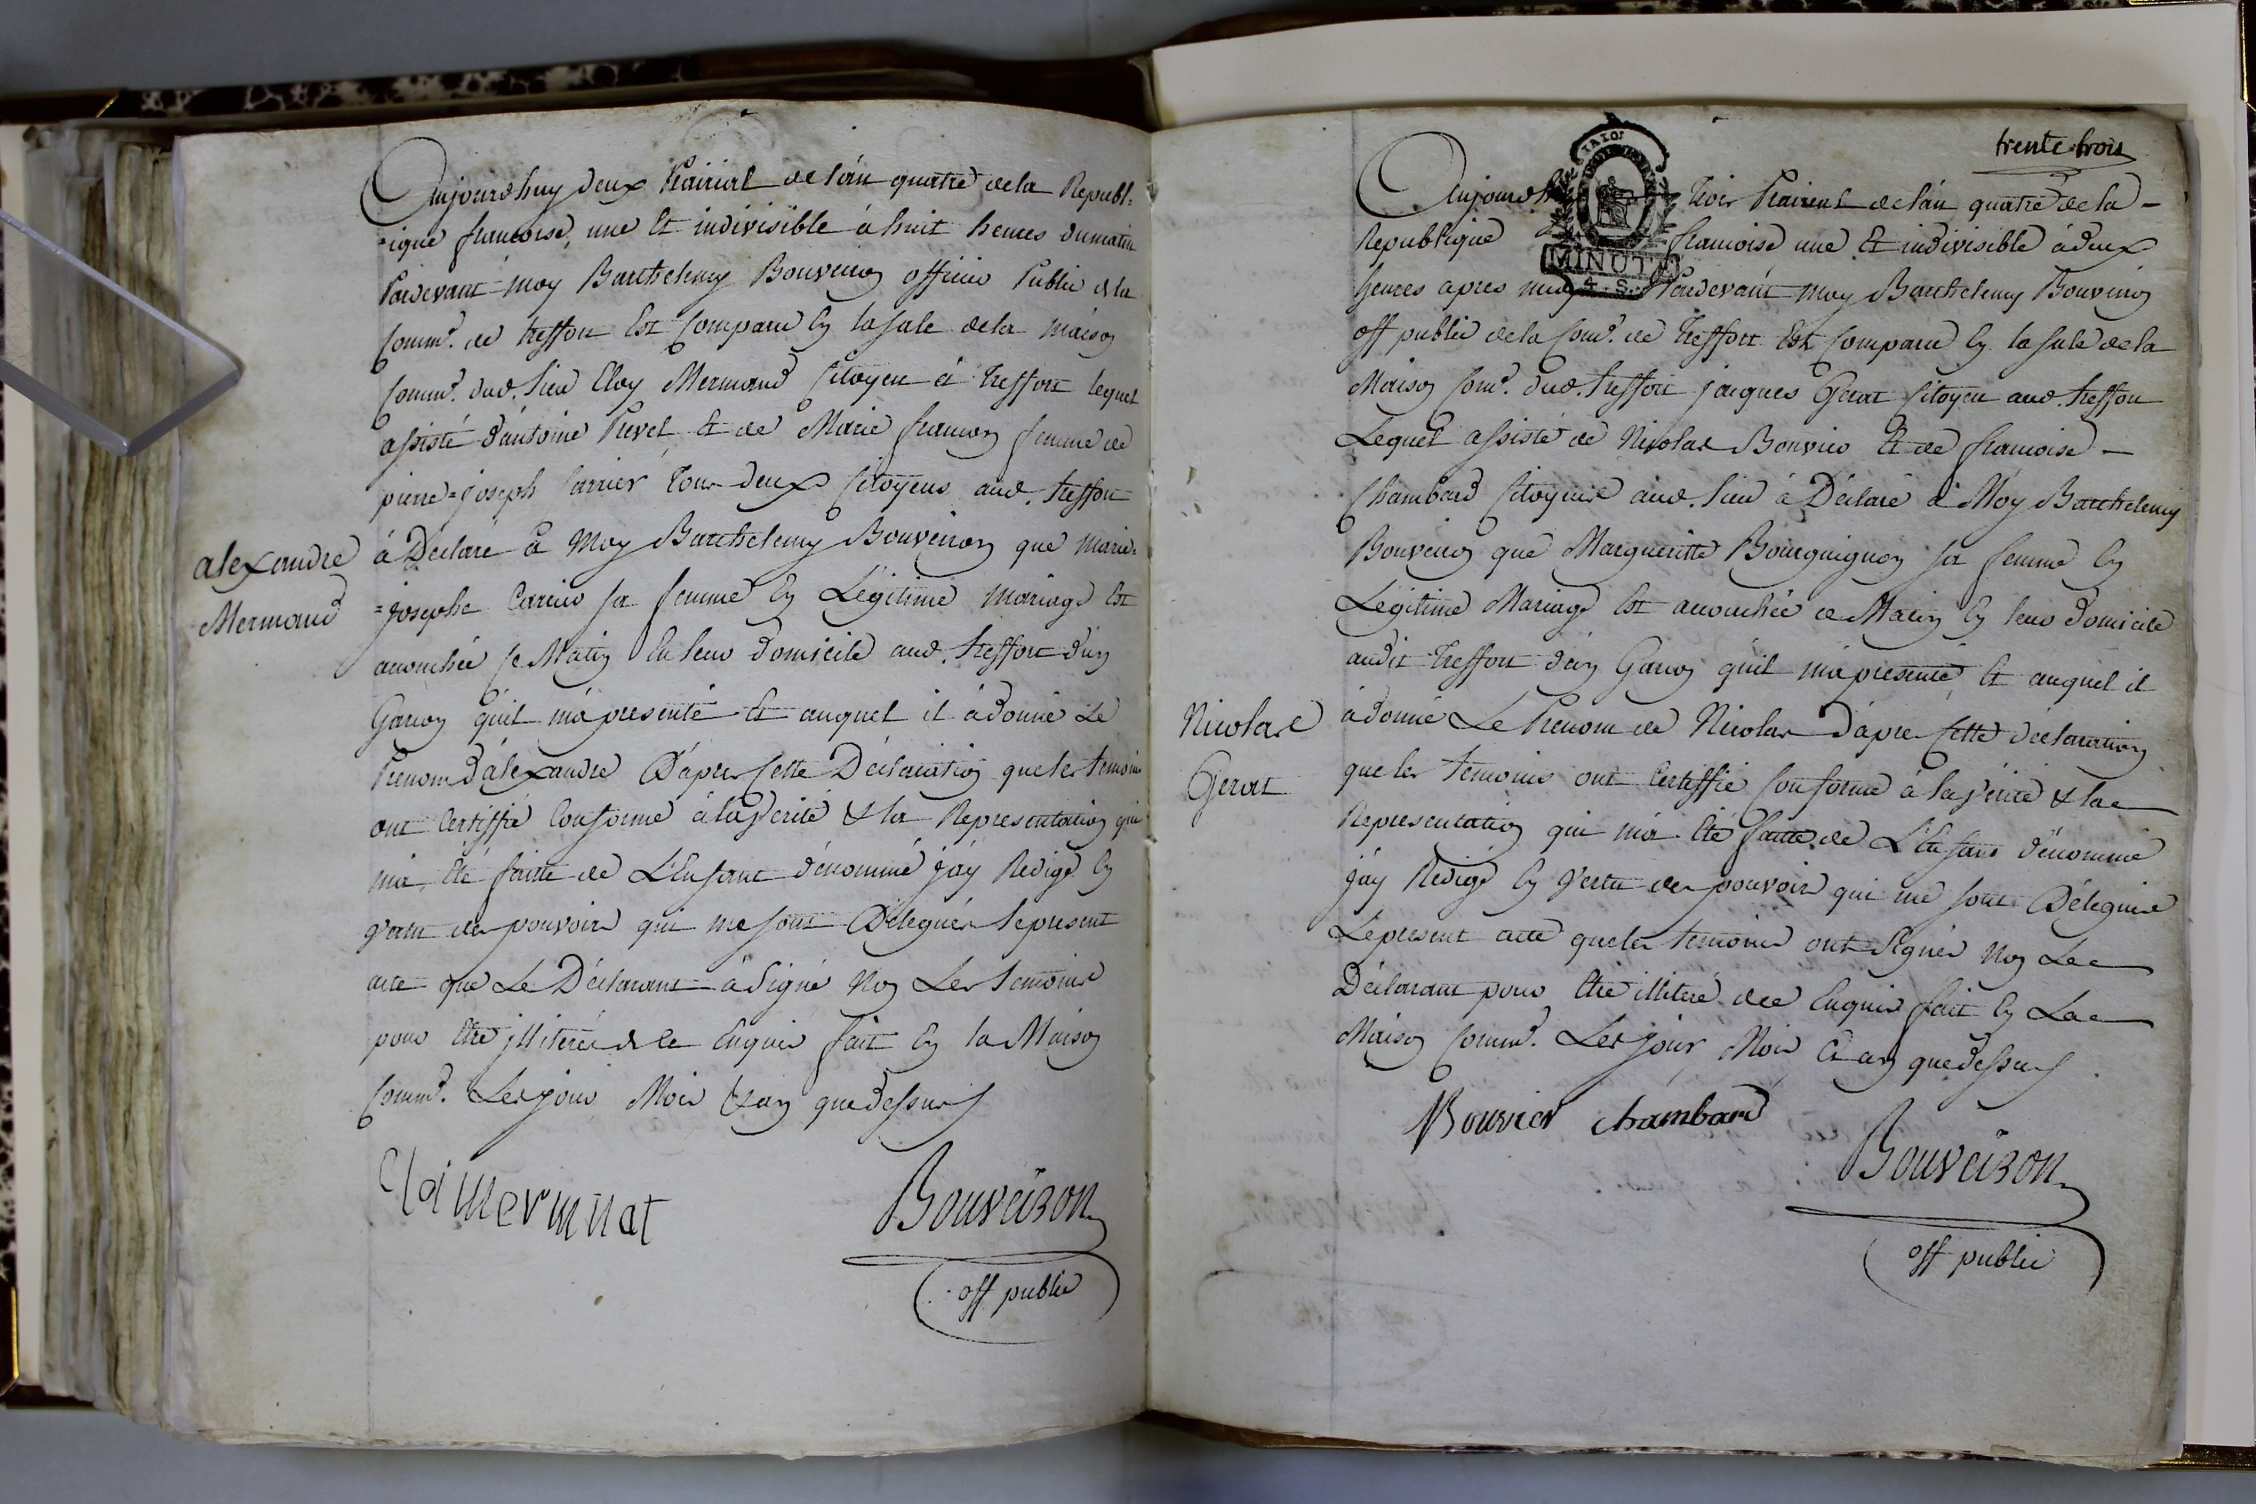 Aujourdhuy deux Prairial de l'an quatre de la Republ=
=ique francoise, une Et indivisible à huit heures du matin
Pardevant moy Barthelemy Bouveiron officier Public de la
Comm.e de treffort Est Comparu En la sale de la maison
Comm.e dud. lieu Eloy Mermand Citoyen à Treffort lequel
assisté d'antoine Pevet Et de Marie francon femme de
pierre=joseph Carrier tous deux Citoyens aud. treffort
à Déclaré à Moy Barthelemy Bouveiron que marie=
=josephe Carrier sa femme En Légitime mariage Est
accouchée ce Matin En leur domicile aud. treffort d'un
Garcon qu'il m'a presenté Et auquel il à donné Le
Prenom d'alexandre D'apres Cette Déclaration que les temoins
ont Certiffié Conforme à la verité & la Representation qui
m'a été faitte de L'Enfant dénommé j'ay Redigé En
vertu des pouvoirs qui me sont Délégués le present
acte que Le Déclarant à Signé Non Les temoins
pour Etre illiterés de ce Enquis fait En la Maison
Comm.e Les jour Mois & an que dessus
alexandre
Mermand
Cloi mermnat
Bouveiron
off public
trente trois
MINUTE
4. S.
Aujourdh trois Prairial de l'an quatre de la
Republique francoise une Et indivisible à deux
heures apres midy Pardevant moy Barthelemy Bouveiron
off public de la Com.e de Treffort Est Comparu En la sale de la
Maison Com.e dud. treffort jacques Gerat Citoyen aud. treffort
Lequel assisté de Nicolas Bouvier Et de francoise
Chambard Citoyens aud. lieu à Déclaré à Moy Barthelemy
Bouveiron que Margueritte Bourguignon sa femme En
Légitime Mariage Est accouchée ce Matin En leur domicile
audit treffort d'un Garcon qu'il m'a presenté Et auquel il
à donné Le Prenom de Nicolas d'apres Cette déclaration
que les temoins ont Certiffié Conforme à la vérité & la
Representation qui m'a Eté faitte de L'Enfant dénommé
j'ay Redigé En vertu des pouvoirs qui me sont Délégués
Le present acte que les temoins ont Signés Non Le
Déclarant pour Etre illiteré de ce Enquis fait En La
Maison Comm.e Les jour Mois & an que dessus
Nicolas
Gerat
Bouvier chambard
Bouveiron
off public